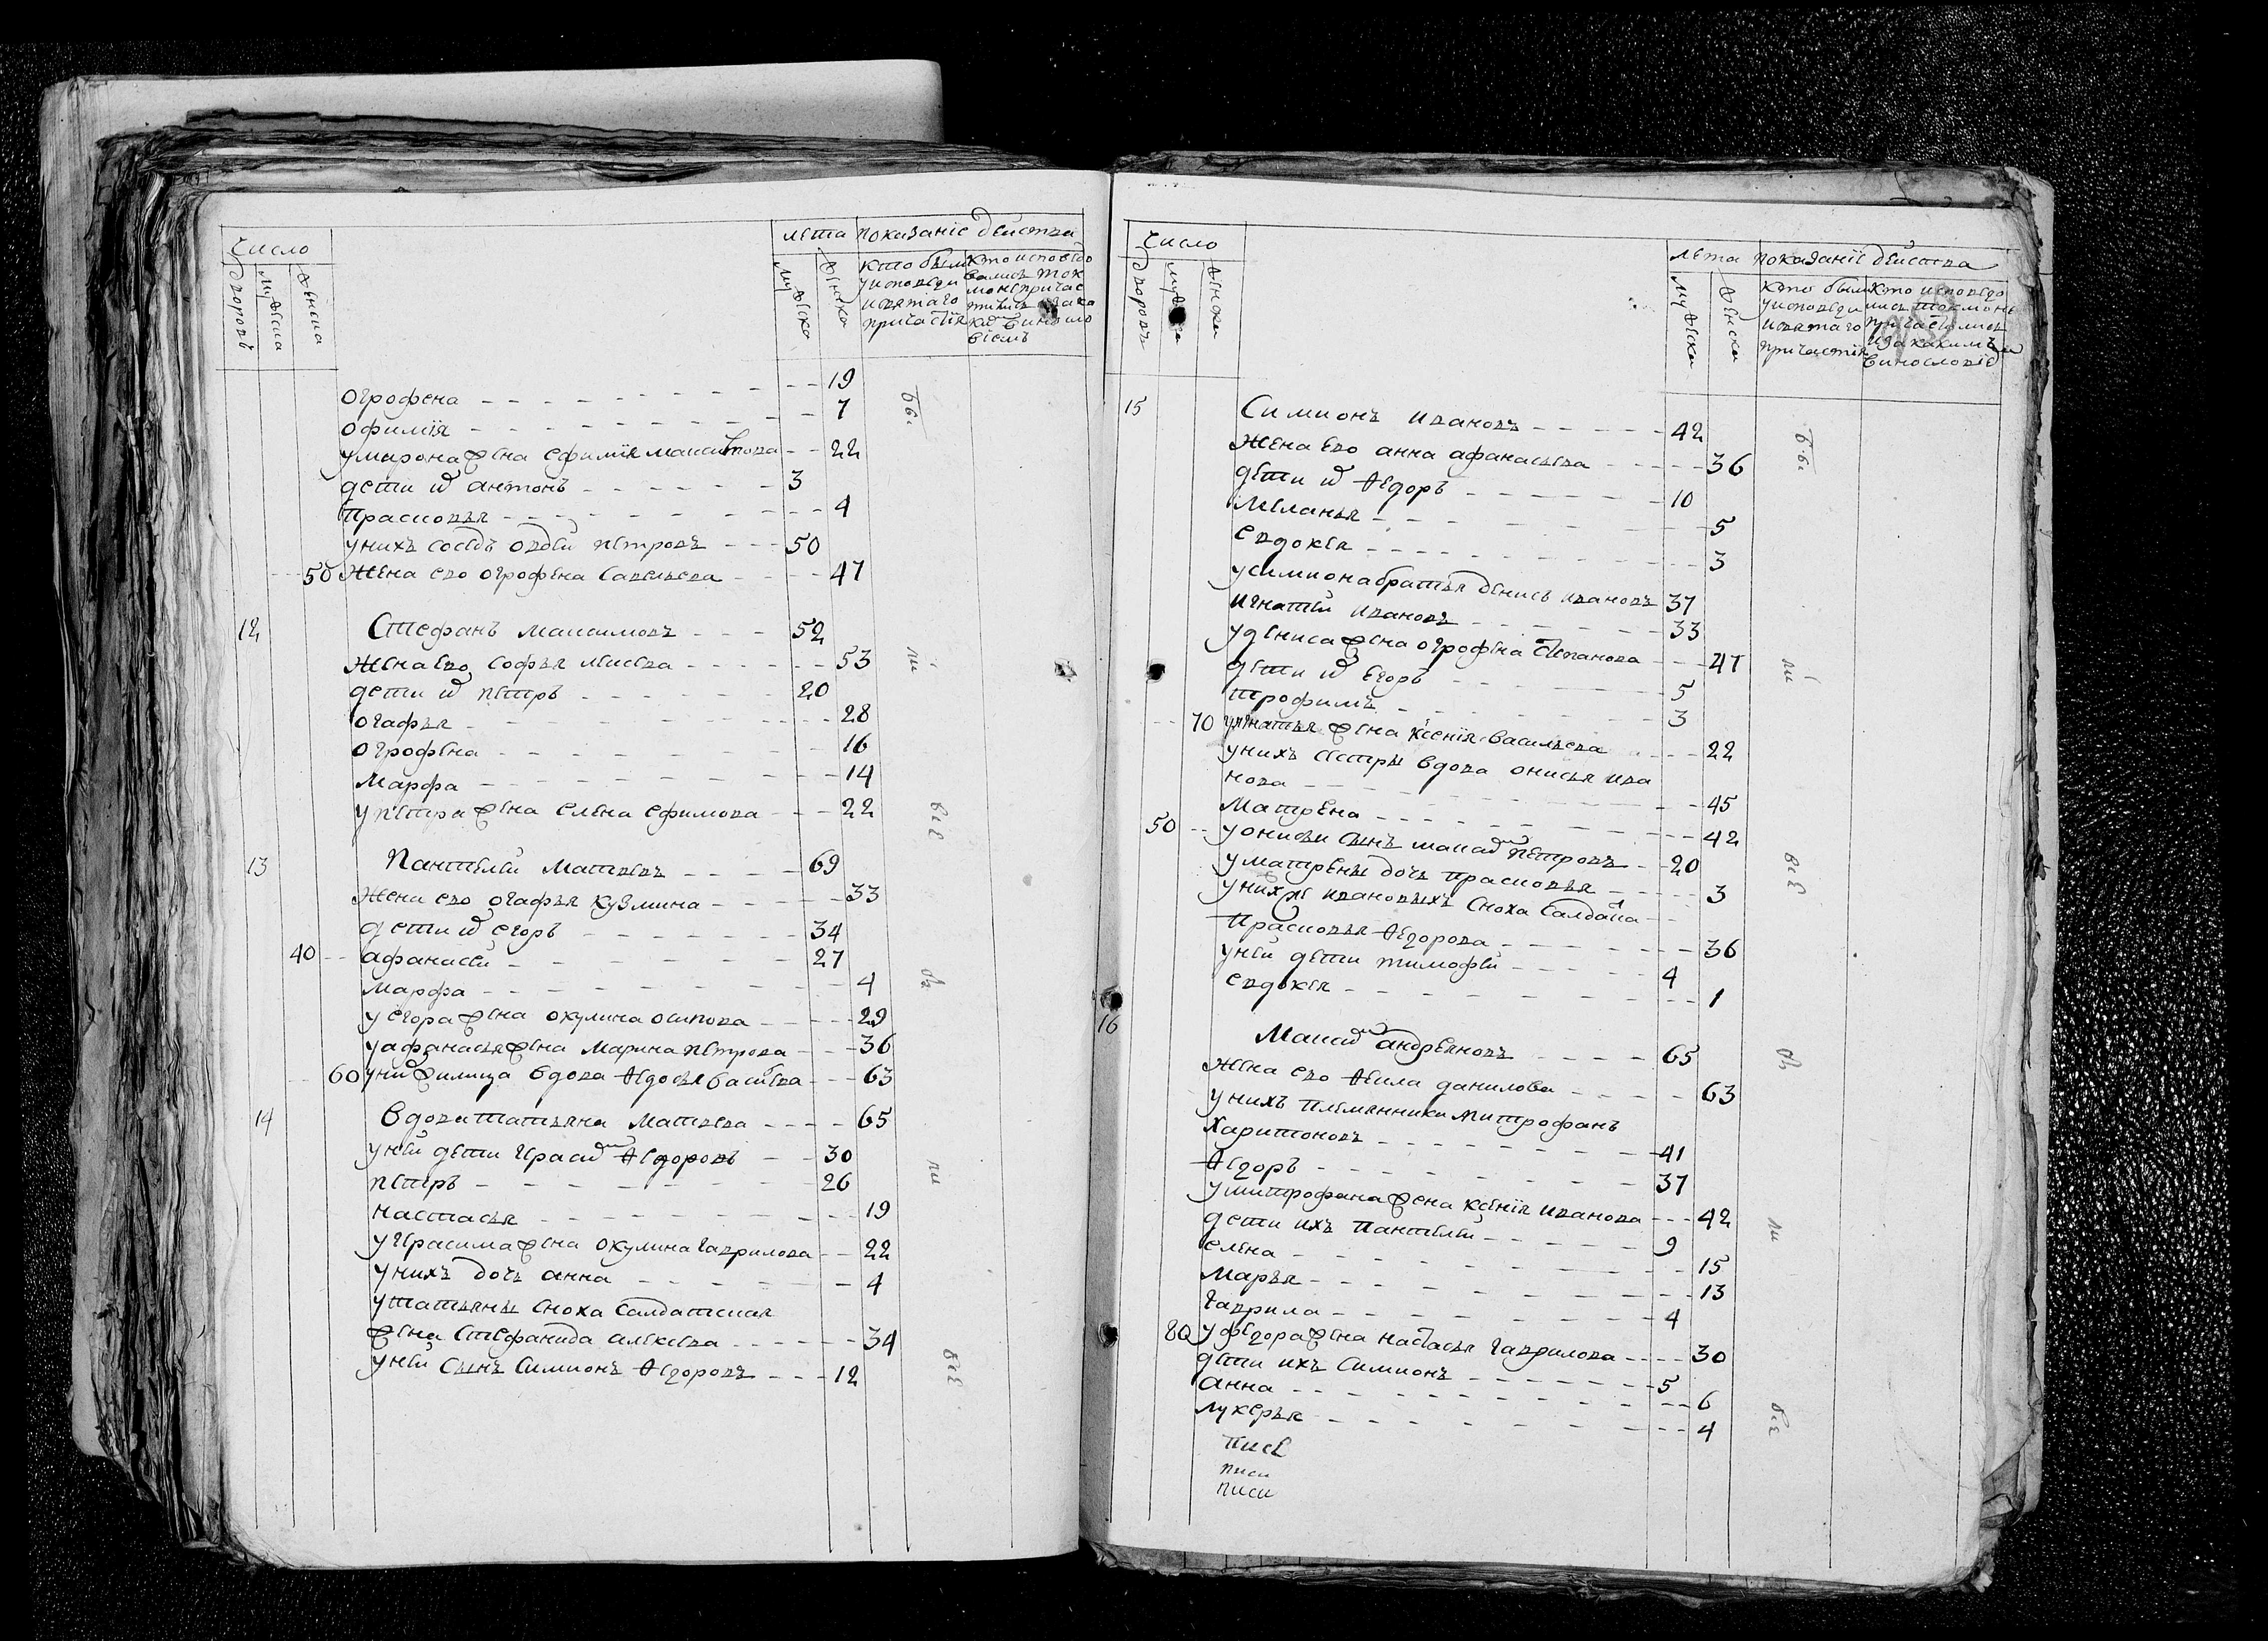 число
лета показаніе действа
дворовъ
мужеска
женска
мужеска
женска
кто были у исповеди и святаго причастія
кто исповедовались токмо непричастились и за каким винословіемъ
огрофена 19
офимія 7
у марона жена ефимія маситова 22
дети их антонъ 3
прасковья 4
у нихъ соседъ овдей петровъ 50
50 жена ево огрофена савельева 47
12 Стефанъ максимовъ 52
жена ево софья моисева 53
дети их петръ 20
огафья 28
огрофена 16
марфа 14
у петра жена елена ефимова 22
13 Пантелей матвевъ 69
жена ево огафья кузмина 33
дети их егоръ 34
40 афанасей 27
марфа 4
у егора жена окулина осипова 29
у афанасья жена марина петрова 36
60 у них жилица вдова ѳедосья васильева 63
14 вдова татьяна матвева 65
у ней дети герасим ѳедоровъ 30
петръ 26
настасья 19
у герасима жена окулина гаврилова 22
у нихъ дочь анна 4
у татьяны сноха салдатская
жена стефанида алексева 34
у ней сынъ симионъ ѳедоровъ 12
бы
ли
все
ль
ли
все
число
лета показаніе действа
дворовъ
мужеска
женска
мужеска
женска
кто были у исповеди и святаго причастія
кто исповедолись токмо не причастились и за какимъ винословіе
15 Симионъ ивановъ 42
жена ево анна афанасьева 36
дети их ѳедоръ 10
меланья 5
евдокея 3
у симиона братья денисъ ивановъ 37
игнатей ивановъ 33
у дениса жена огрофена степанова 47
дети их егоръ 5
трофимъ 3
70 у игнатья жена ксенія васильева 22
у нихъ сестры вдова онисья ива
нова 45
матрена 42
50 у онисьи сынъ максим петровъ 20
у матрены дочь прасковья 3
у них же ивановыхъ сноха салдацка
прасковья ѳедорова 36
у ней дети тимофей 4
евдокея 1
16 Максим андреяновъ 65
жена ево ѳекла данилова 63
у нихъ племянники митрофанъ
харитоновъ 41
ѳедоръ 37
у митрофана жена ксенія иванова 42
дети ихъ пантелей 9
елена 15
марья 13
гаврила 4
80 у федора жена настасья гаврилова 30
дети ихъ симионъ 5
анна 6
лукерья 4
писе
писи
писи
бы
ли
все
ль
ли
все